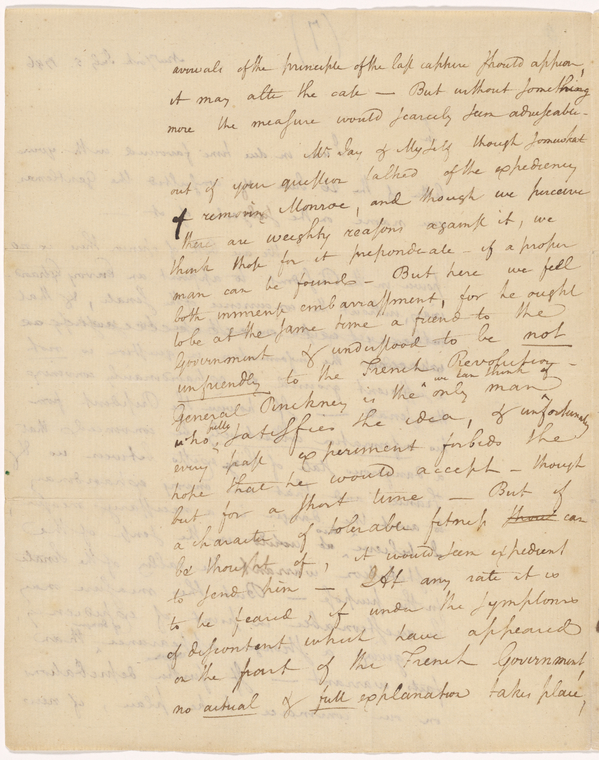 avowals of the principle of the last capture should appear,
it may alter the case — But without something
more the measure would scarcely seem adviseable —
Mr. Jay & Myself though somewhat
out of your question talked of the expediency
of removing Monroe, and though we perceive
there are weighty reasons against it, we
think those for it preponderate — if a proper
man can be found — But here we feel
both immense embarrassment, for he ought
to be at the same time a friend to the
Government & understood to be not
unfriendly to the French Revolution —
General Pinckney is the only man we can think of
who fully satisfies the idea, & unfortunately
every past experiment forbids the
hope that he would accept — though
but for a short time — But if
a character of tolerable fitness can
be thought of, it would seem expedient
to send him — At any rate it is
to be feared, if under the symptoms
of discontent which have appeared
on the part of the French Government,
no actual & full explanation takes place,